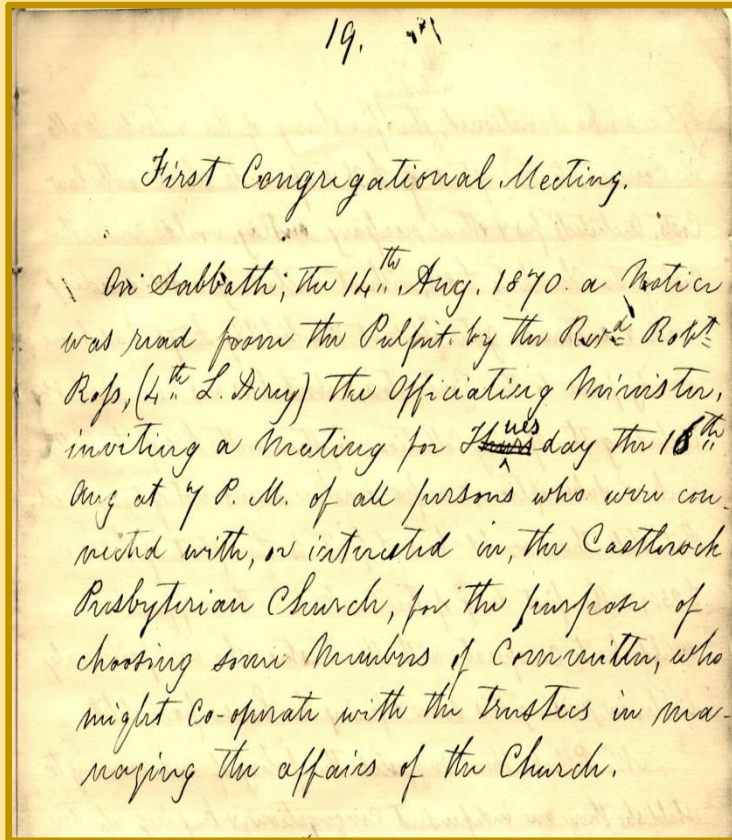 19.
First Congregational Meeting.
On Sabbath, the 14th Aug. 1870. a Notice
was read from the Pulpit by the Revd Robt
Ross, (4th L. Derry) the Officiating Minister,
inviting a Meeting for Tuesday the 16th
Aug at 7 P.M. of all persons who were con-
nected with, or interested in, the Castlerock
Presbyterian Church, for the purpose of
choosing some Members of Committee, who
might Co-operate with the trustees in ma-
naging the affairs of the Church.